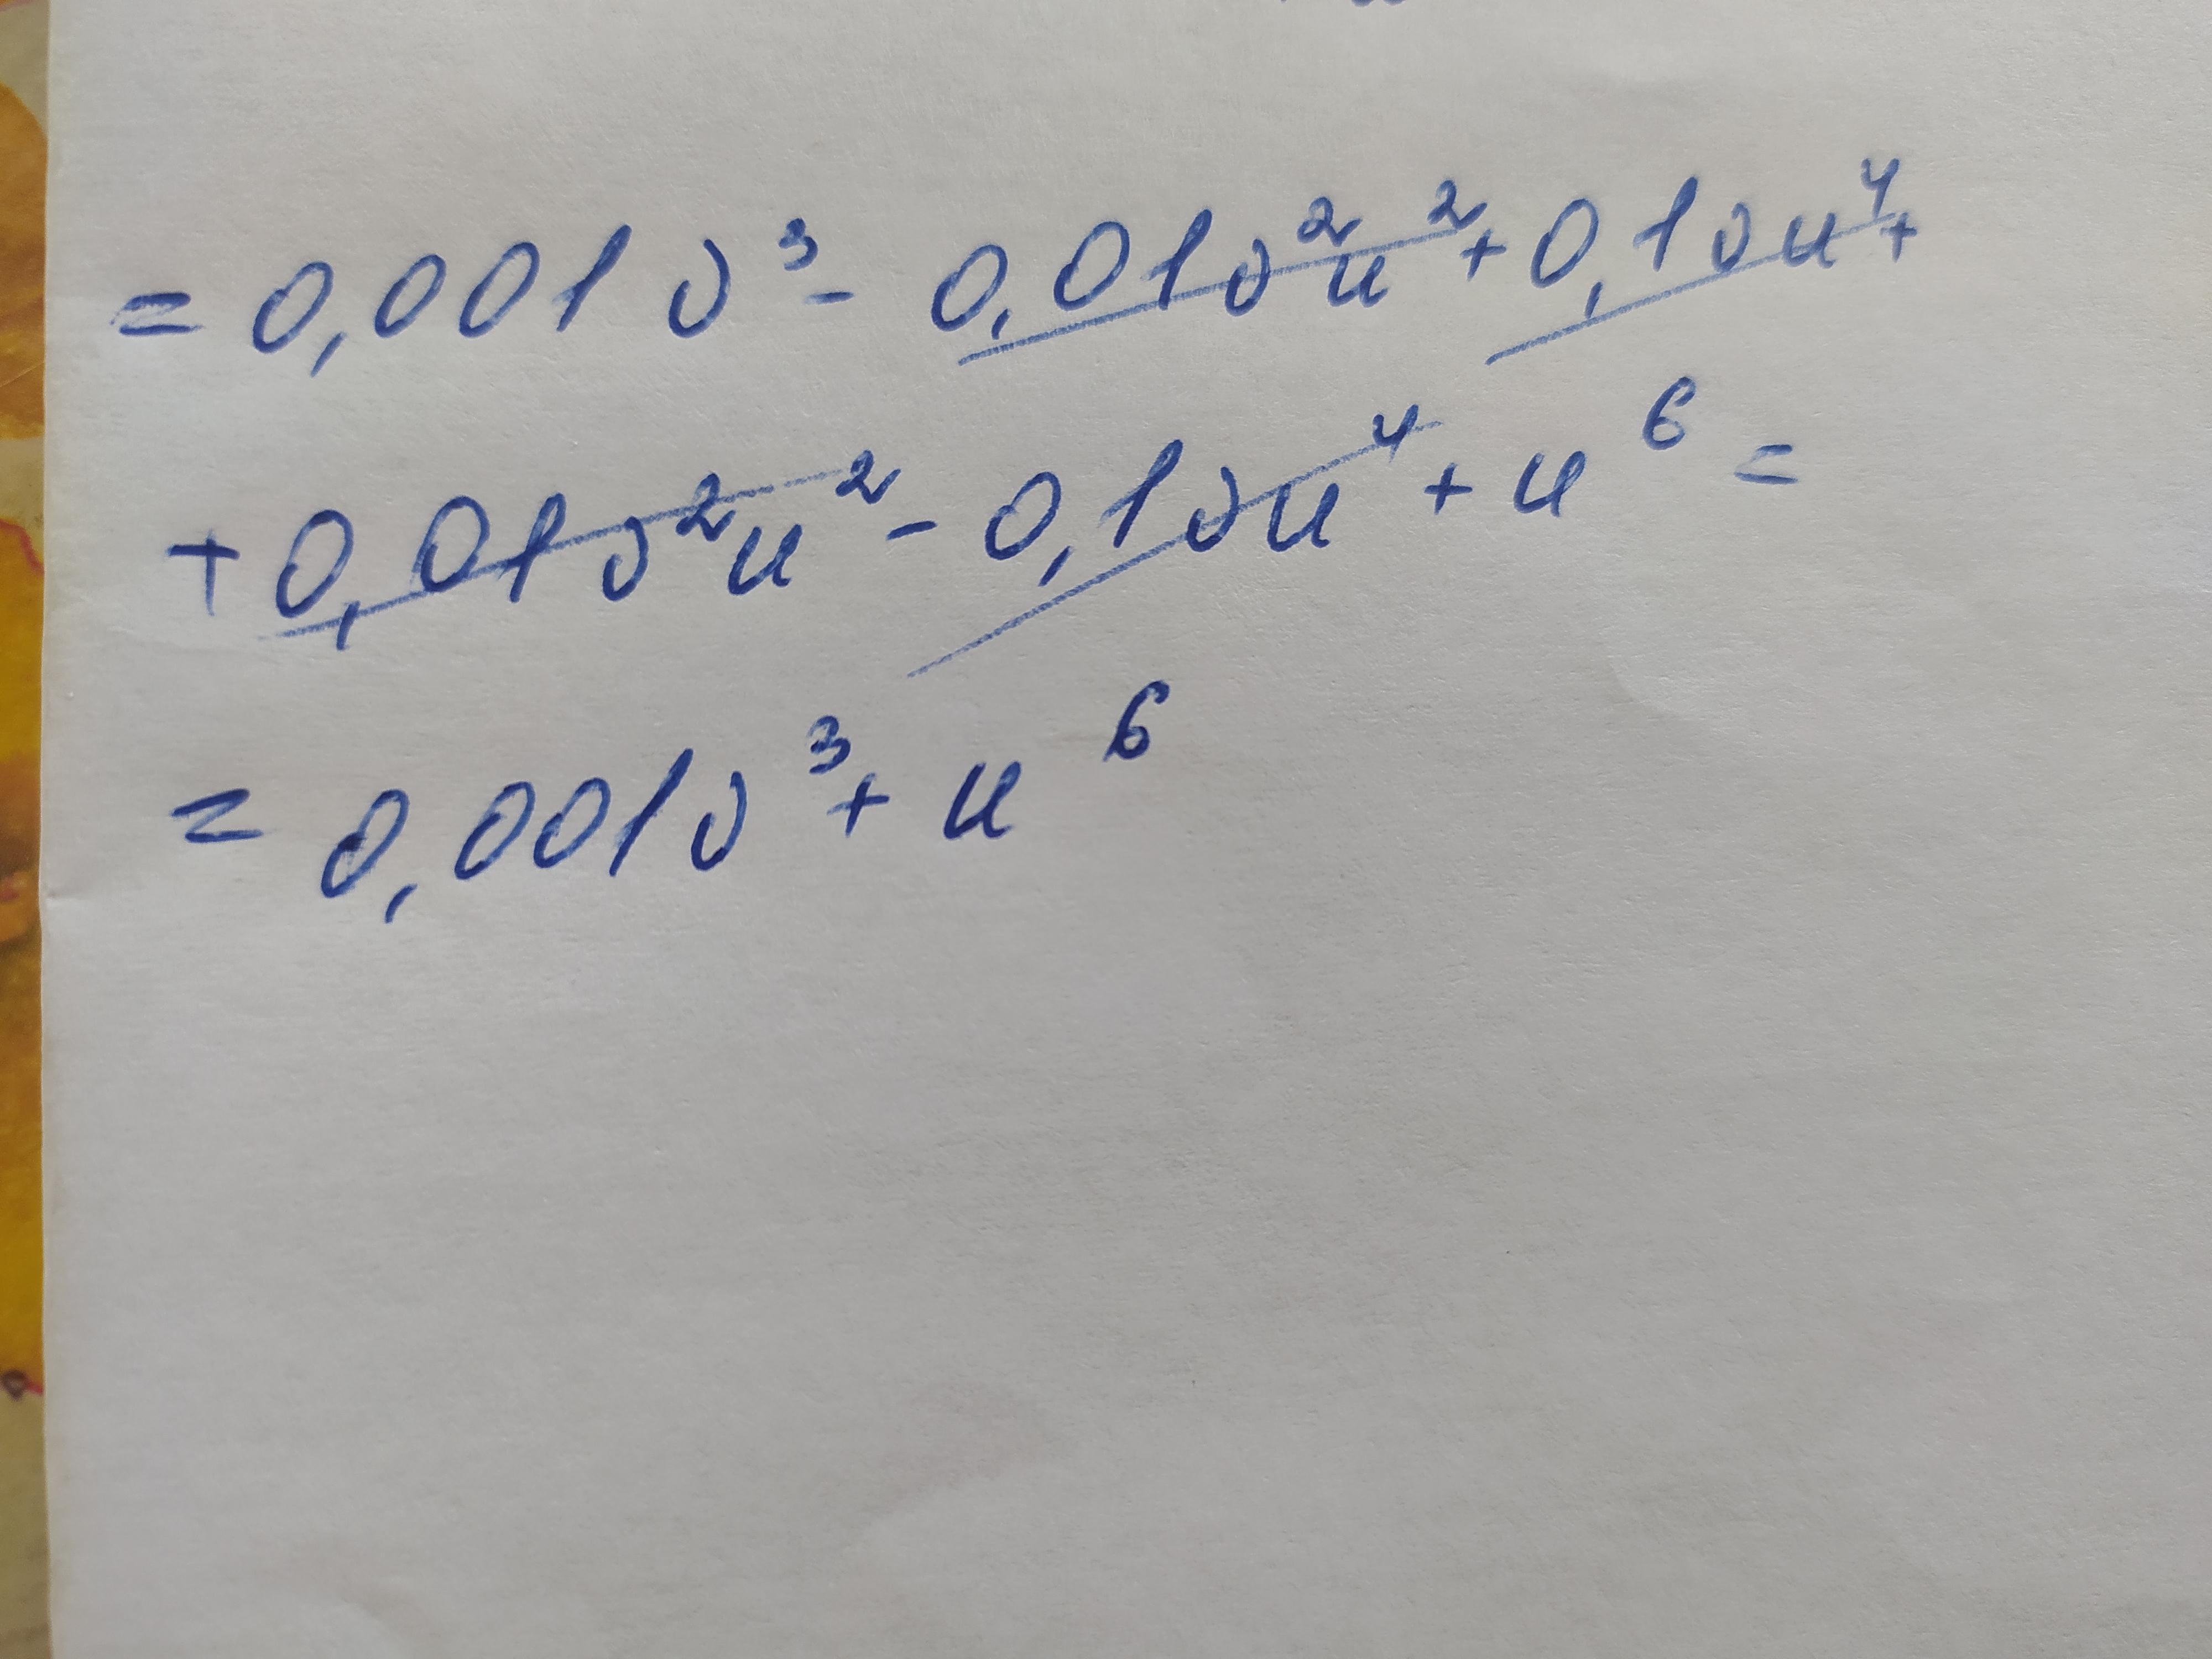 = 0,001 v³ - 0,01v²u² + 0,1vu⁴ +
+ 0,01v²u² - 0,1vu⁴ + u⁶ =
= 0,001v³ + u⁶